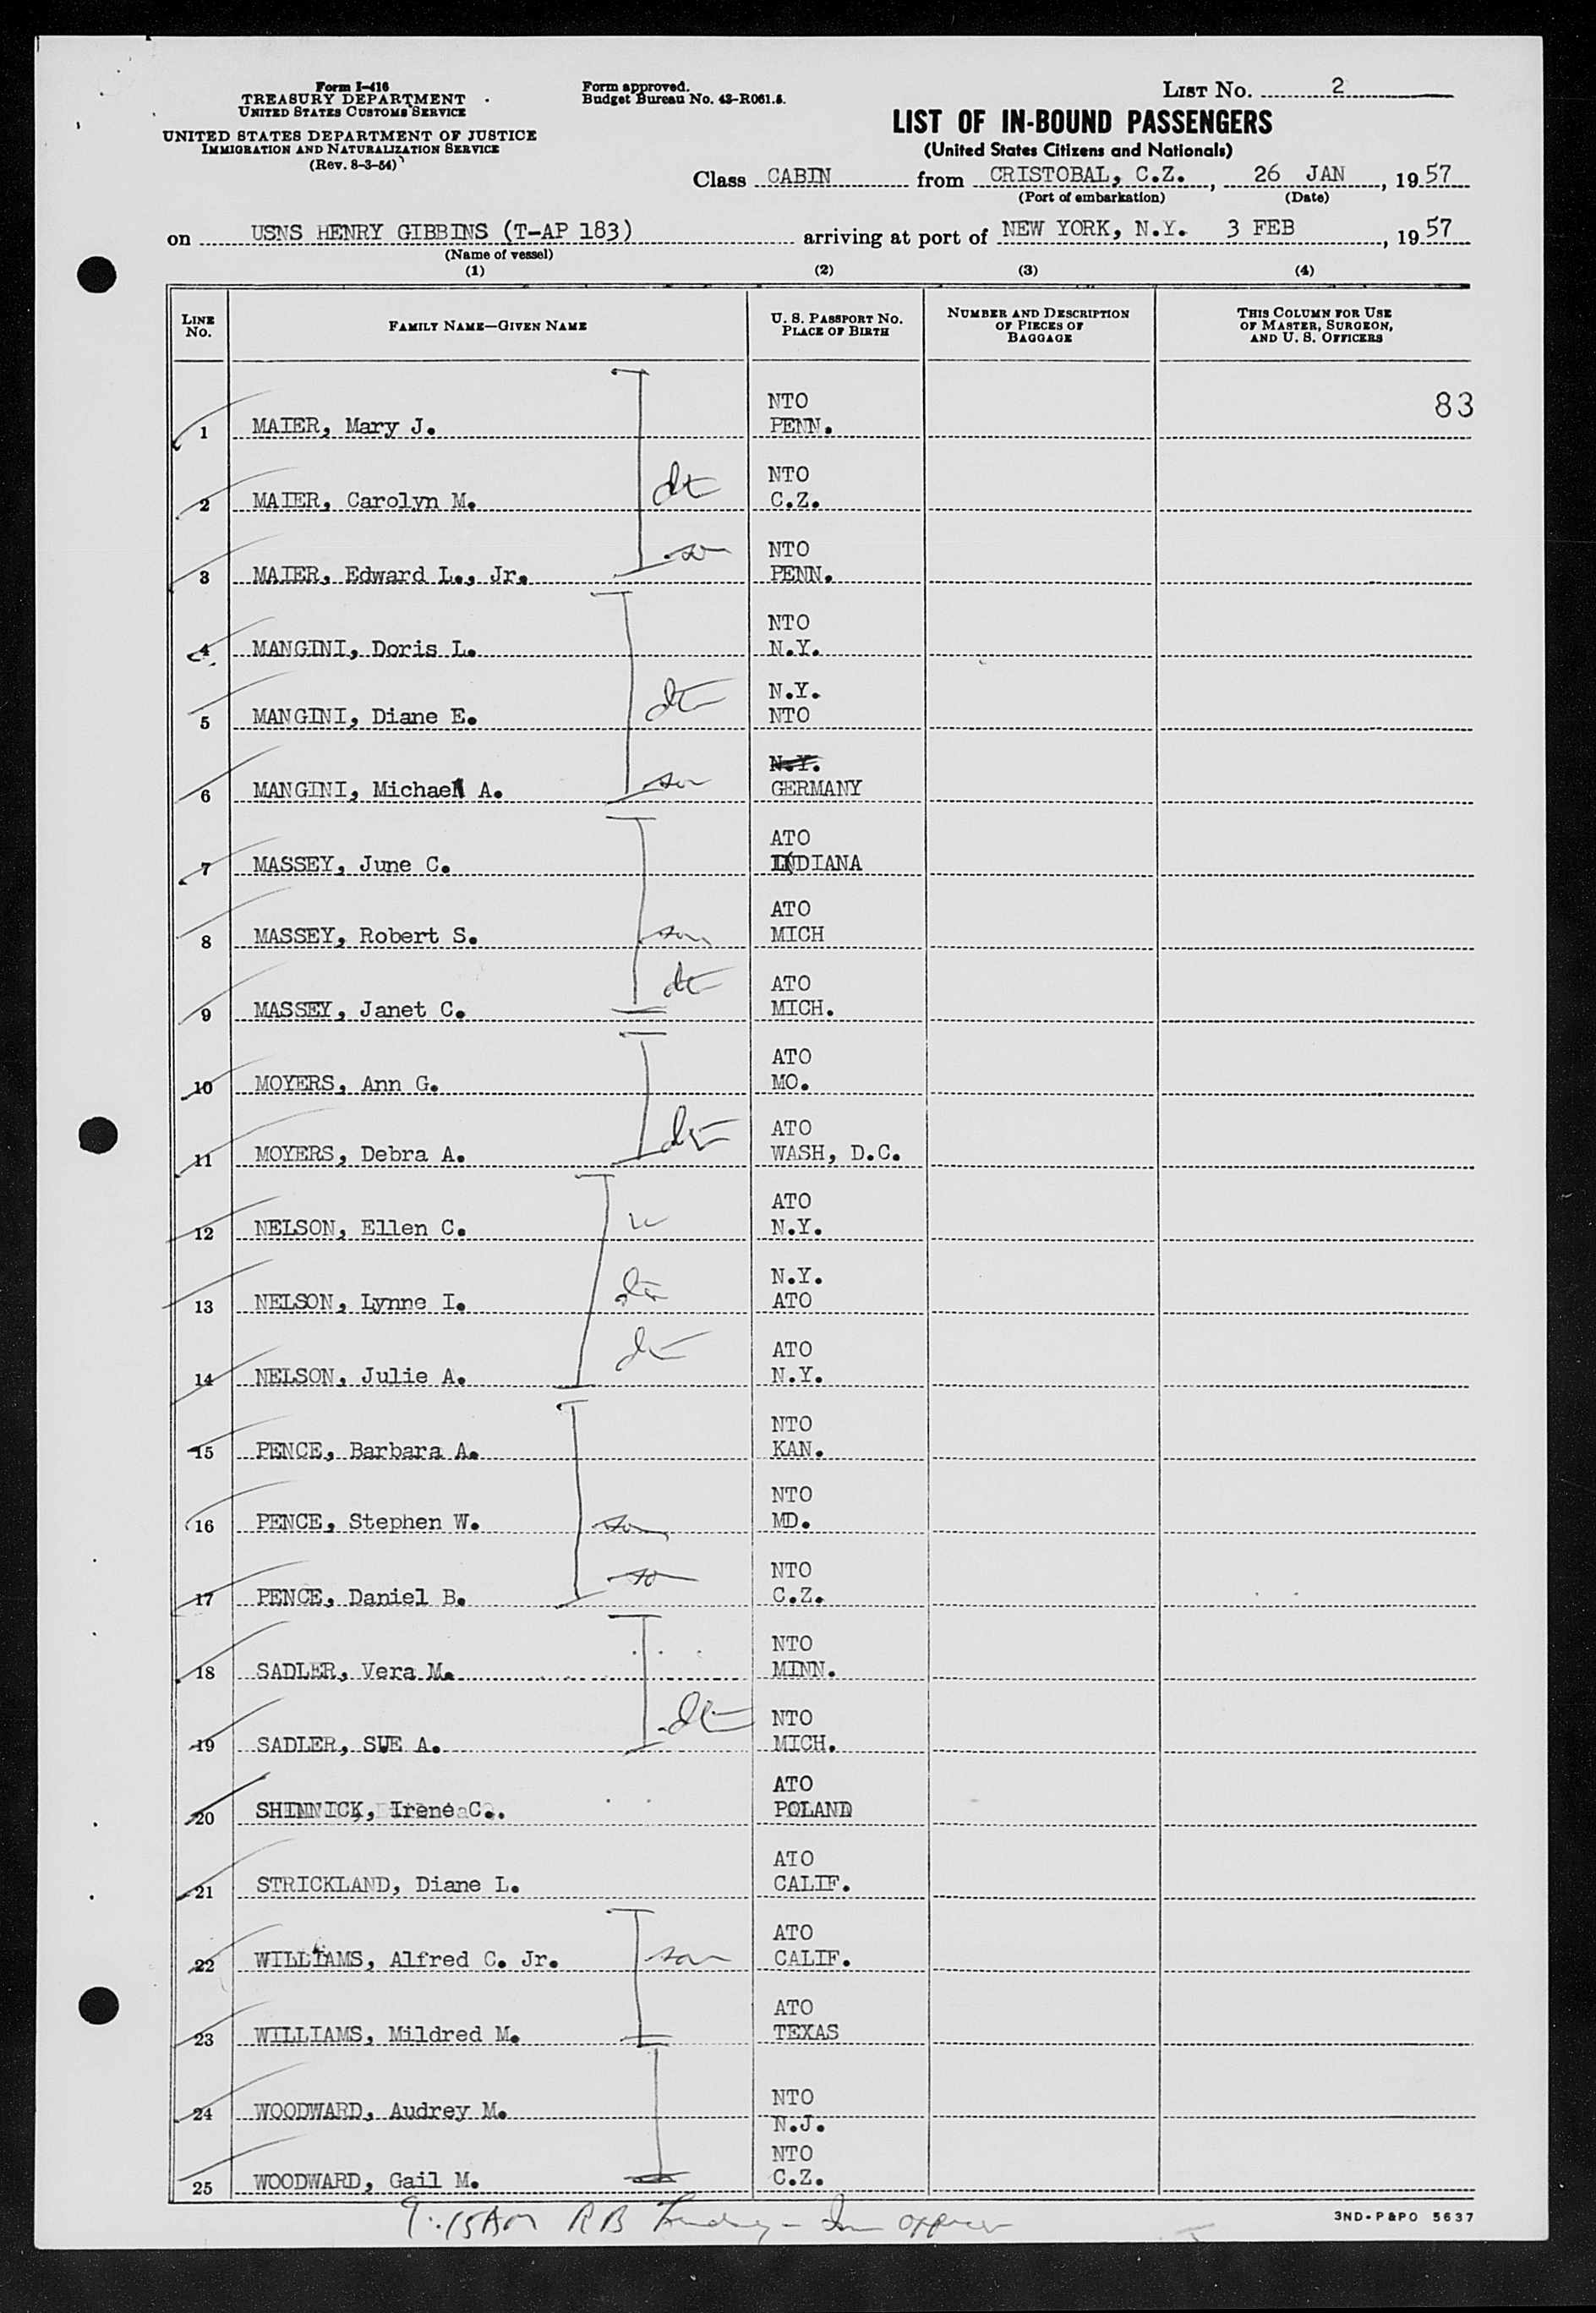 Form I-416
TREASURY DEPARTMENT
UNITED STATES CUSTOMS SERVICE
UNITED STATES DEPARTMENT OF JUSTICE
IMMIGRATION AND NATURALIZATION SERVICE
(Rev. 8-3-54)
Form approved.
Budget Bureau No. 43-R061.5.
LIST No. 2
LIST OF IN-BOUND PASSENGERS
(United States Citizens and Nationals)
Class CABIN from CRISTOBAL, C.Z., 26 JAN, 1957
(Port of embarkation) (Date)
on USNS HENRY GIBBINS (T-AP 183) arriving at port of NEW YORK, N.Y. 3 FEB, 1957
(Name of vessel)
(1) (2) (3) (4)
LINE No. FAMILY NAME—GIVEN NAME U. S. PASSPORT No. PLACE OF BIRTH NUMBER AND DESCRIPTION OF PIECES OF BAGGAGE THIS COLUMN FOR USE OF MASTER, SURGEON, AND U. S. OFFICERS
NTO 83
1 MAIER, Mary J. PENN.
dt NTO
2 MAIER, Carolyn M. C.Z.
son NTO
3 MAIER, Edward L., Jr. PENN.
NTO
4 MANGINI, Doris L. N.Y.
dt N.Y.
5 MANGINI, Diane E. NTO
son N.Y.
6 MANGINI, Michael A. GERMANY
ATO
7 MASSEY, June C. INDIANA
ATO
8 MASSEY, Robert S. son MICH
dt ATO
9 MASSEY, Janet C. MICH.
ATO
10 MOYERS, Ann G. MO.
dt ATO
11 MOYERS, Debra A. WASH, D.C.
ATO
12 NELSON, Ellen C. N.Y.
dt N.Y.
13 NELSON, Lynne I. ATO
dt ATO
14 NELSON, Julie A. N.Y.
NTO
15 PENCE, Barbara A. KAN.
NTO
16 PENCE, Stephen W. son MD.
son NTO
17 PENCE, Daniel B. C.Z.
NTO
18 SADLER, Vera M. MINN.
dt NTO
19 SADLER, SUE A. MICH.
ATO
20 SHINNICK, Irene C. POLAND
ATO
21 STRICKLAND, Diane L. CALIF.
ATO
22 WILLIAMS, Alfred C. Jr. son CALIF.
ATO
23 WILLIAMS, Mildred M. TEXAS
NTO
24 WOODWARD, Audrey M. N.J.
NTO
25 WOODWARD, Gail M. C.Z.
9:15AM RB
3ND-P&PO 5637